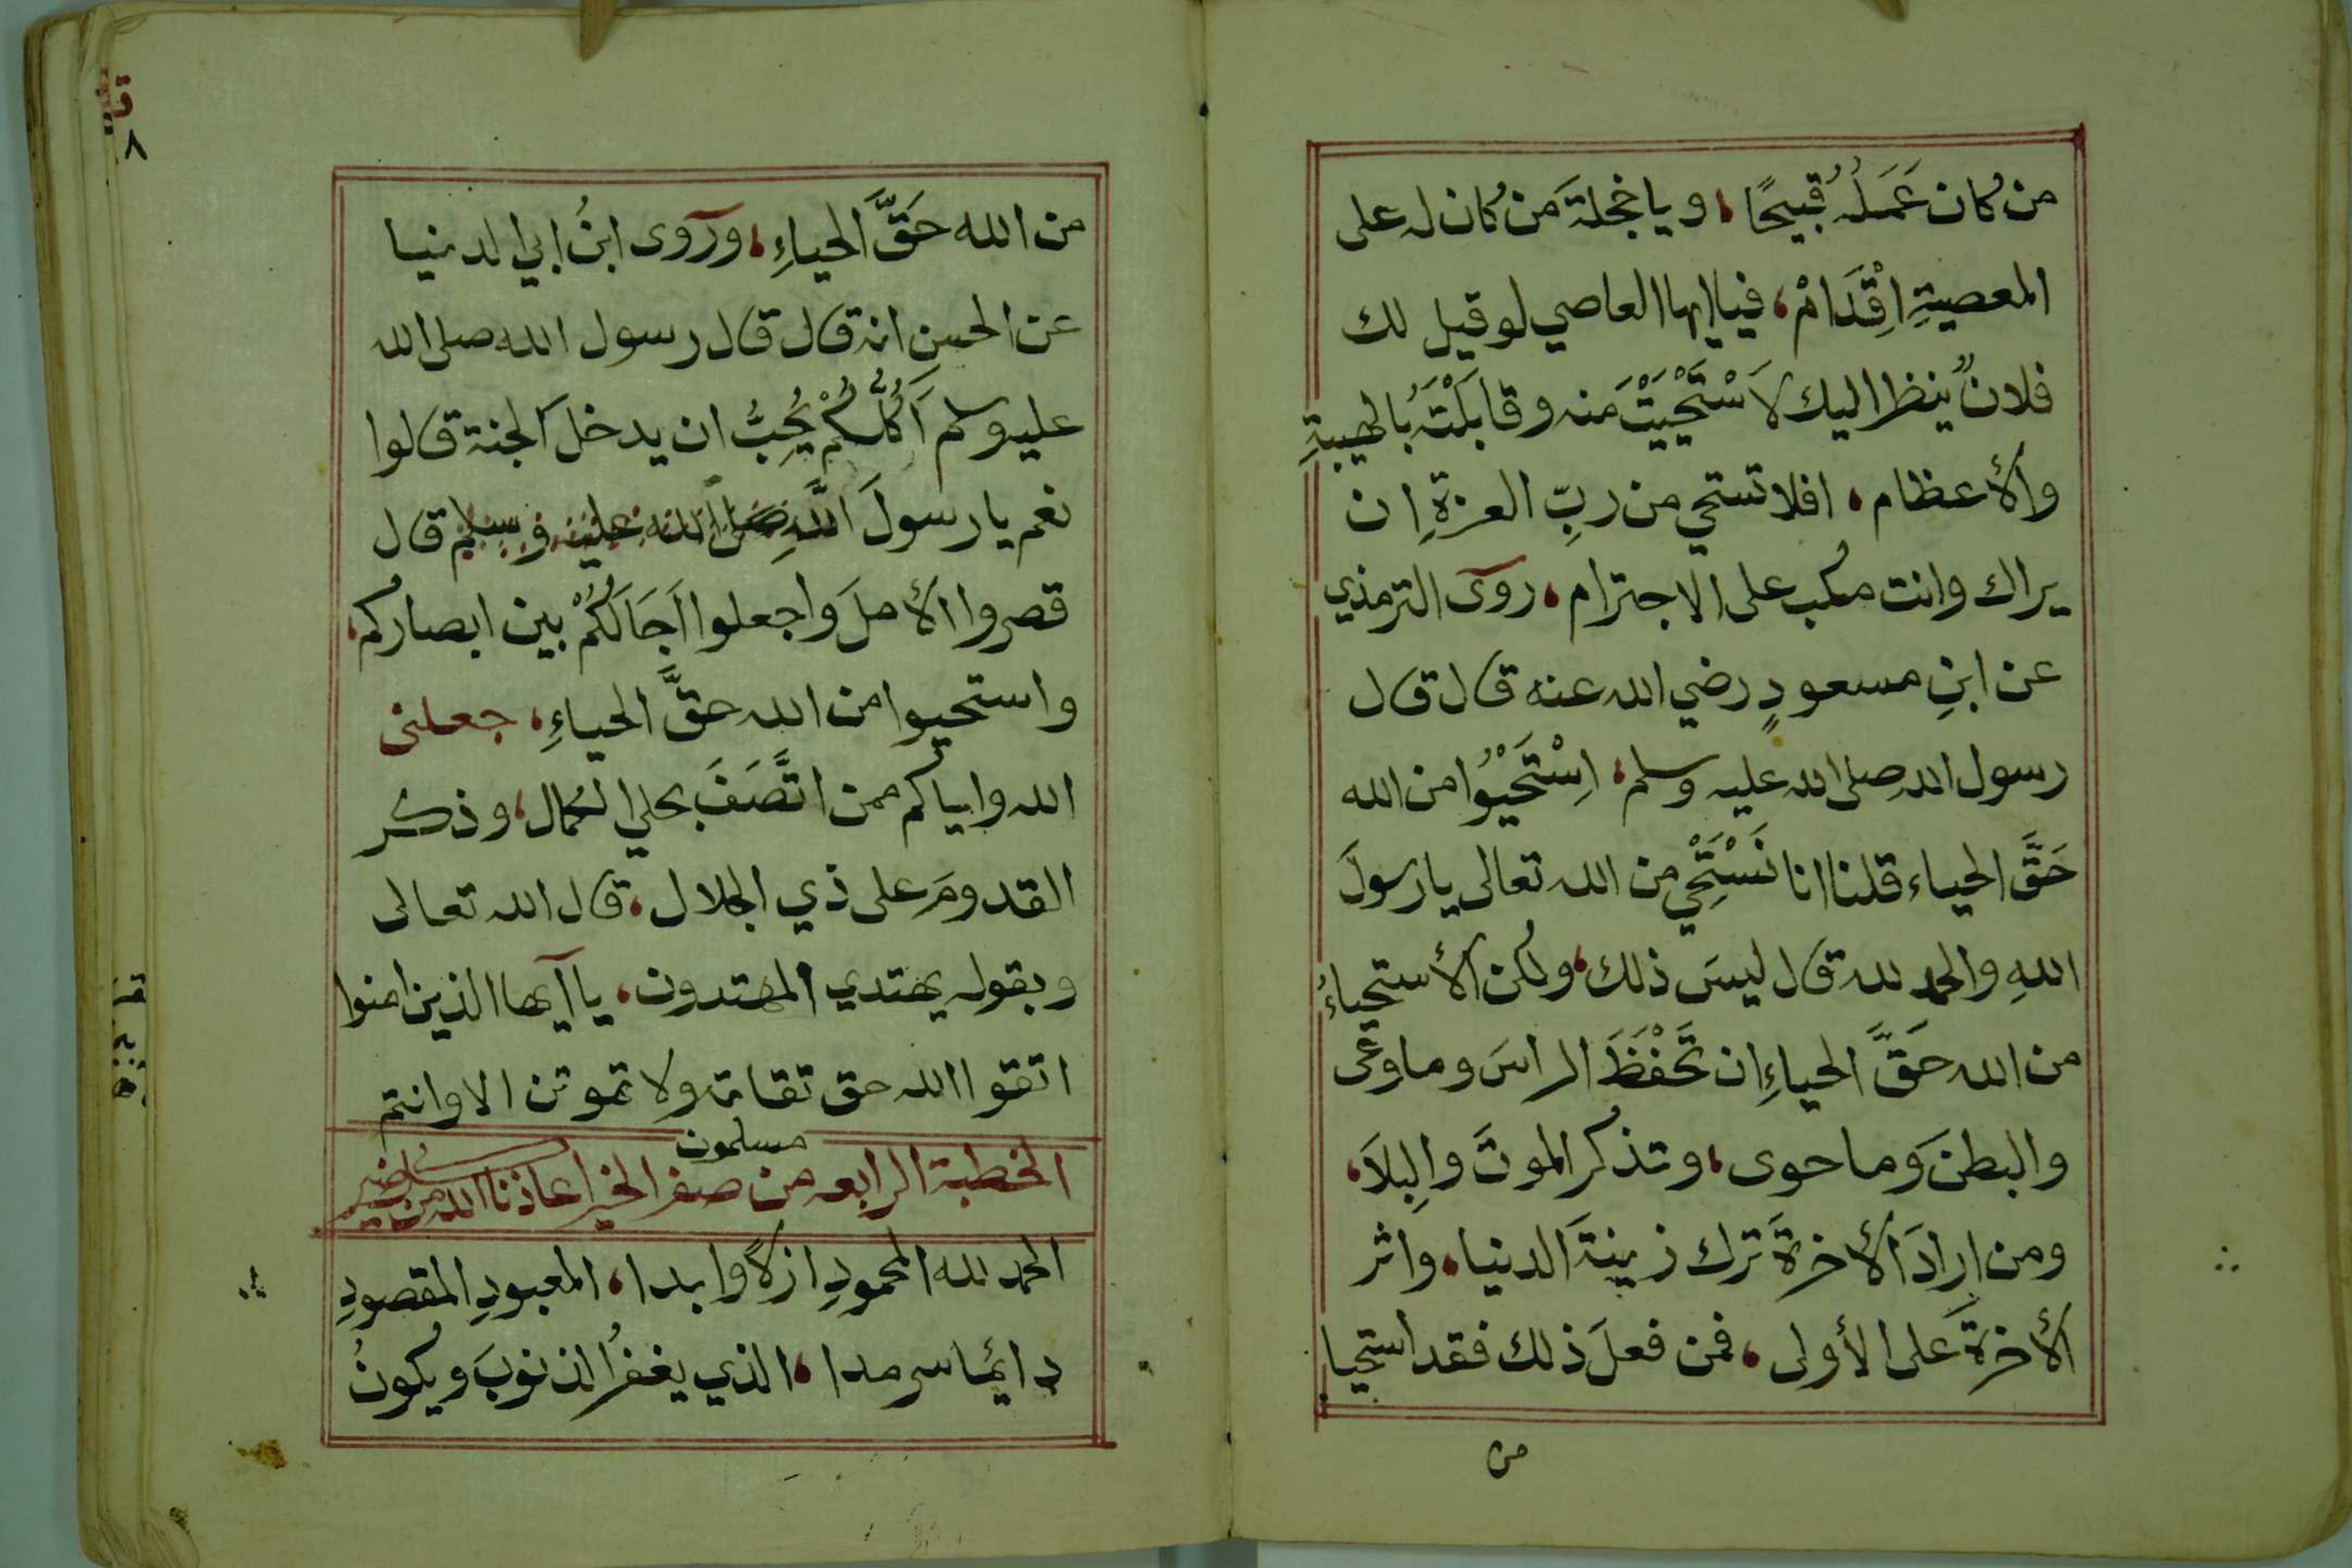 من كان عَمَلُهُ قبيحًا، ويا خجلةَ من كان له على
المعصيةِ اِقْدَامْ، فيا ايها العاصي لو قيل لك
فلانٌ ينظر اليك لاَسْتَحْيَيْتَ منه وقابَلْتَهُ بالهيبةِ
والأعظام، افلا تستحي من ربِّ العزةِ ان
يراك وانت مكب على الاجترام، روى الترمذي
عن ابنِ مسعودٍ رضي الله عنه قال قال
رسول الله صلى الله عليه وسلم، اِسْتَحْيُوْا من الله
حَقَّ الحياء قلنا انا نَسْتَحْيِ من الله تعالى يا رسولَ
اللهِ والحمد لله قال ليسَ ذلك، ولكن الأستحياءُ
من الله حَقَّ الحياءِ ان تَحْفَظَ الراسَ وما وعى
والبطنَ وما حوى، وتذكر الموتَ والبِلاَ،
ومن ارادَ الأخرةَ ترك زينةَ الدنيا، واثر
الأخرةَ على الأولى، فمن فعلَ ذلك فقد استحيا
من
من الله حَقَّ الحياءِ، وروى ابنُ ابي الدنيا
عن الحسنِ انه قال قال رسول الله صلى الله
عليه وسلم اَكُلُّكُمْ يُحِبُّ ان يدخلَ الجنة قالوا
نعم يا رسولَ اللهِ صلى الله عليه وسلم قال
قصروا الأملَ واجعلوا اَجَالَكُمْ بين ابصاركم،
واستحيوا من الله حقَّ الحياءِ، جعلنى
الله واياكم ممن اتَّصَفَ بحلي الكمال، وذكر
القدومَ على ذي الجلال، قال الله تعالى
وبقوله يهتدي المهتدون، يا آيها الذين امنوا
اتقوا الله حق تقاته ولا تموتن الا وانتم
مسلمون
الخطبة الرابعه من صفر الخير اعاذنا الله من
الحمد لله المحمودِ ازلاً وابدا، المعبودِ المقصودِ
دائما سرمدا، الذي يغفرُ الذنوبَ ويكونُ
٨